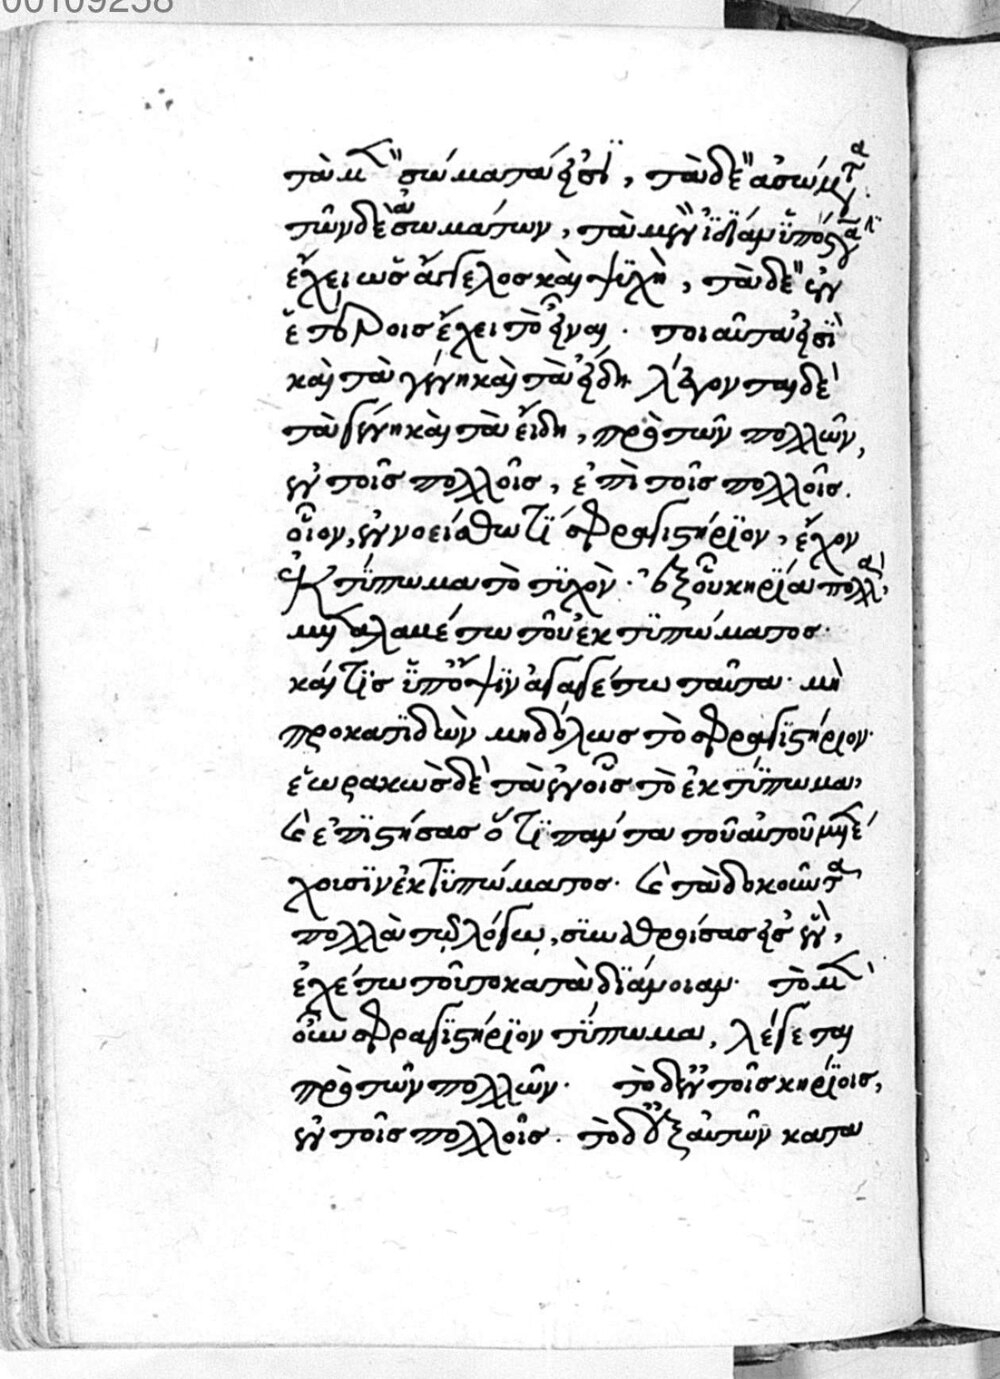 00109258
τὰ μ(ὲν) σώματά εἰσϊ, τὰ δὲ ἀσώματα.
τῶν δὲ ἀσωμάτων, τὰ μὲν ἰδίαν ὕπόστασϊν
ἔχει ὡς ἄγγελος καὶ ψϋχὴ, τὰ δὲ ἐν
ἑτέροις ἔχει τὸ εἶναι. τοιαῦτα εἰσῒ
καὶ τὰ γένη καὶ τὰ εἴδη λέγονται δὲ
τὰ γένη καὶ τὰ εἴδη, πρὸ τῶν πολλῶν,
ἐν τοῖς πολλοῖς, ἐπὶ τοῖς πολλοῖς.
οἷον, ἐννοείσθω τῒ σφραγιστήρϊον, ἔχον
ἐκτΰπωμα τὸ τϋχὸν. ἐξ οὗ κηρΐα πολλὰ
μεταλαμέτω τοῦ ἐκτϋπώματος.
καί τϊς ὑπ' ὄψϊν ἀγαγέτω ταῦτα. μὴ
προκατϊδὼν μηδόλως τὸ σφραγϊστήριον.
ἑωρακὼς δὲ τὰ ἐν οἷς τὸ ἐκτΰπωμα,
καὶ ἐπϊστήσας ὅτϊ πάντα τοῦ αὐτοῦ μετέ
χουσϊν ἐκτϋπώματος. καὶ τὰ δοκοῦντα
πολλὰ τῷ λόγῳ, σϋναθροίσας εἰς ἓν,
ἐχέτω τοῦτο κατὰ δϊάνοιαν. τὸ μ(ὲν)
οὖν σφραγϊστήρϊον τΰπωμα, λέγεται
πρὸ τῶν πολλῶν. τὸ δ' ἐν τοῖς κηρΐοις,
ἐν τοῖς πολλοῖς. τὸ δ' ἐξ αὐτῶν κατα